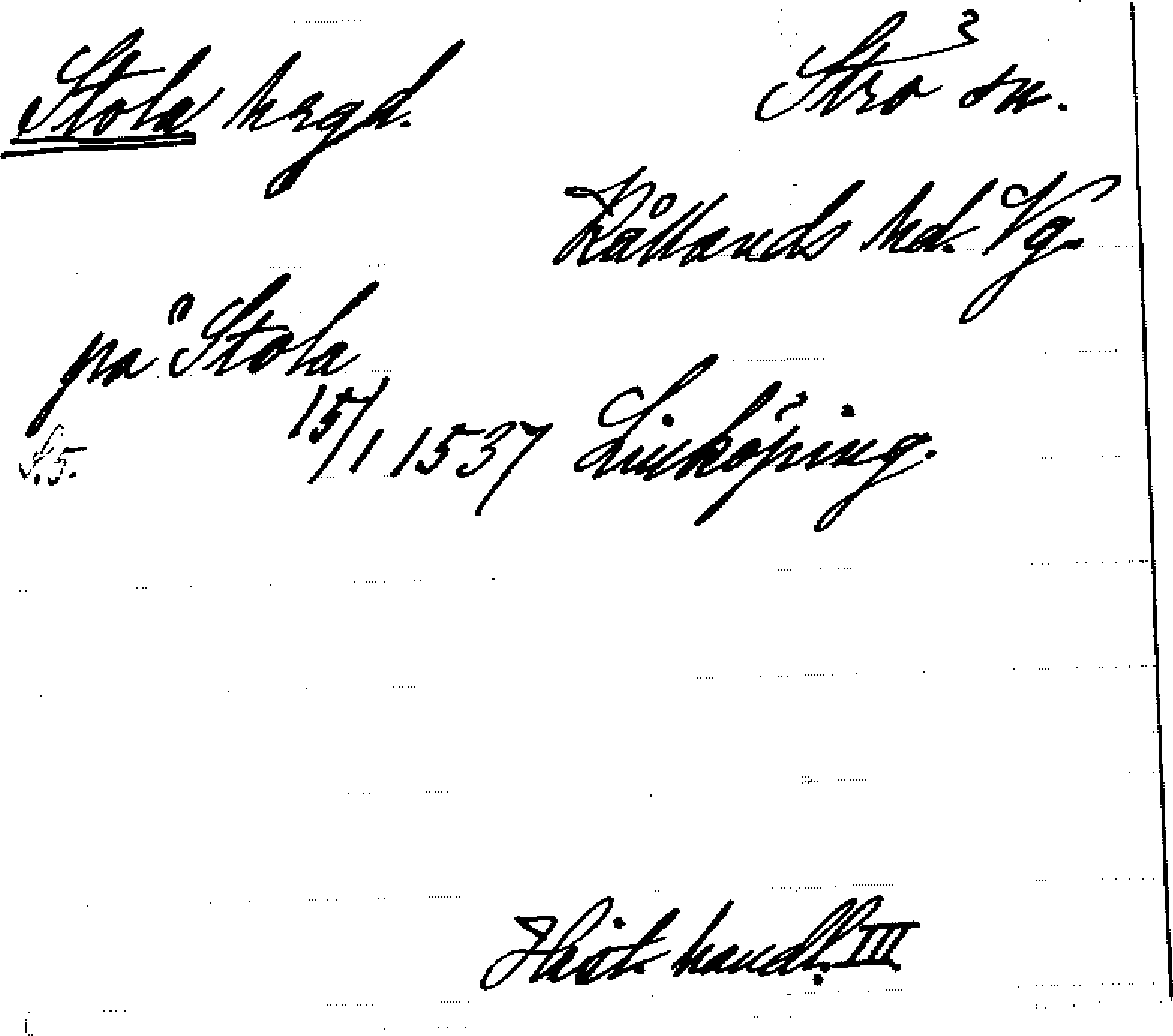 Stola hrgd. Strö sn.
Kållands hd. Vg.
på Stola
S. 5. 15/1 1537 Linköping.
Hist. handl. III